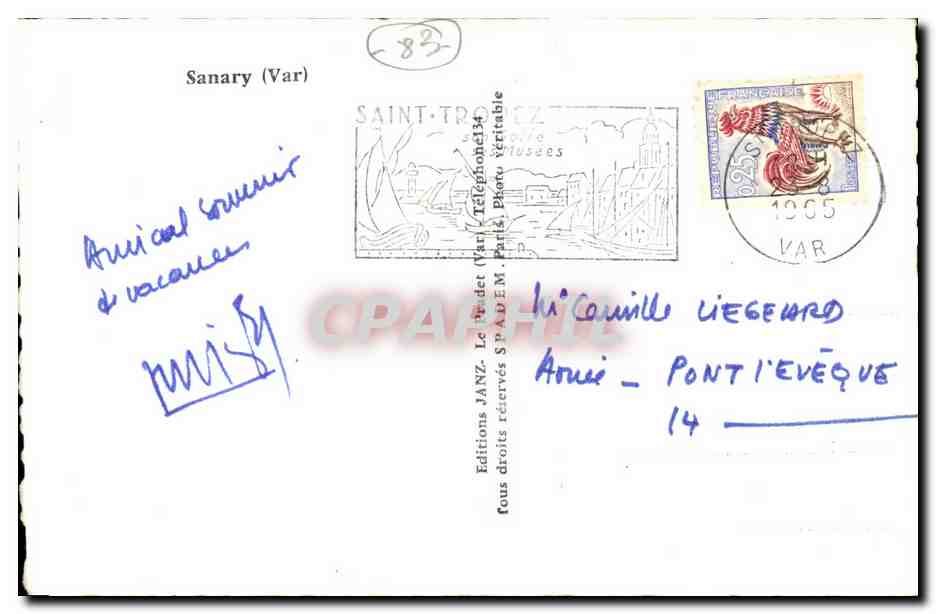 83
Sanary (Var)
SAINT-TROPEZ
Musées
REPUBLIQUE FRANÇAISE
0,25
1965
VAR
Amical souvenir
de vacances
Editions JANZ- Le Pradet (Var) - Téléphone134
Tous droits réservés SPADEM. Paris. Photo véritable
CPAPHIL
Mr Camille LIEGEARD
PONT L'EVÊQUE
14